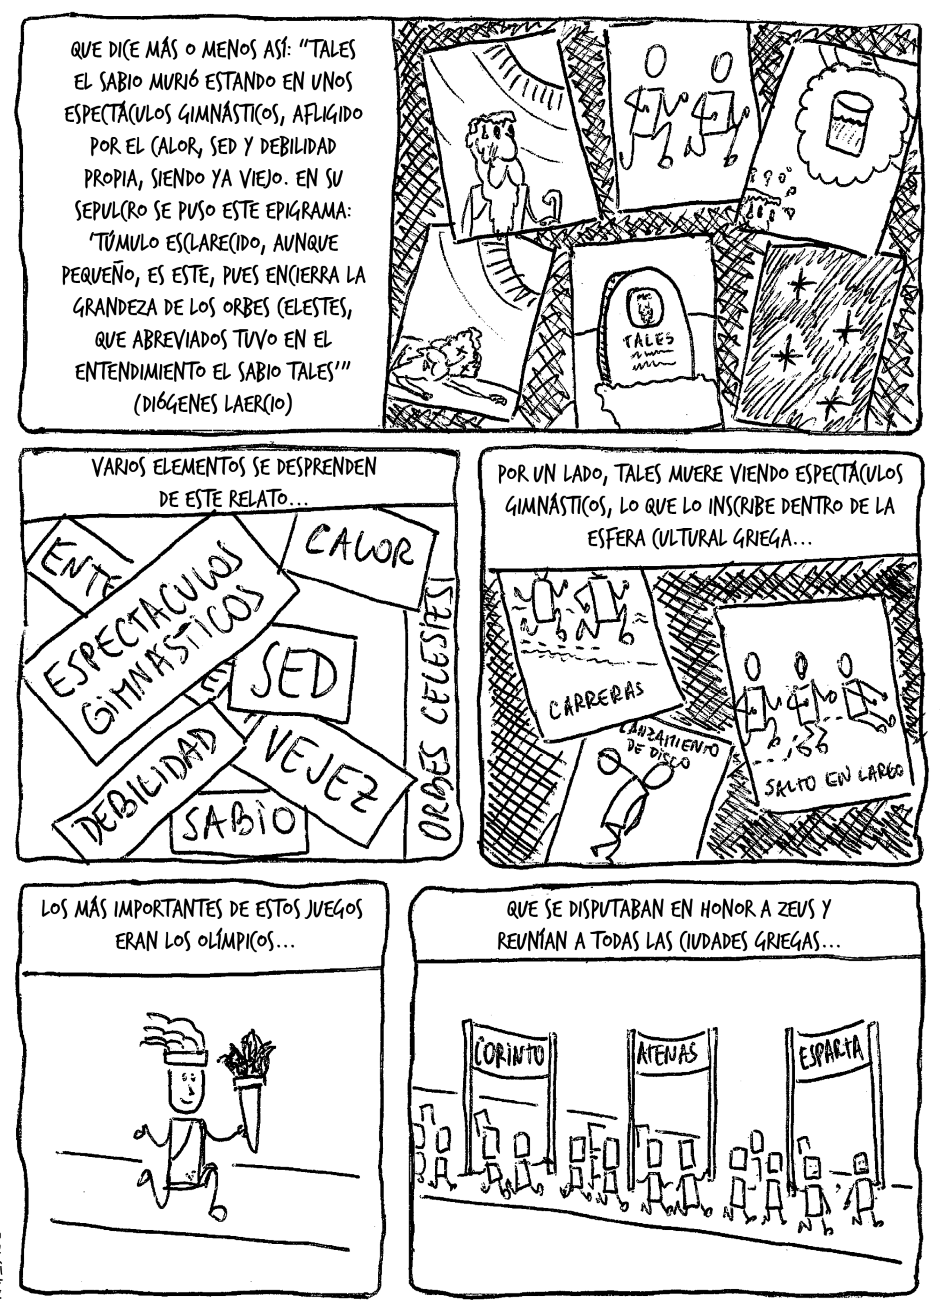 QUE DICE MÁS O MENOS ASÍ: "TALES
EL SABIO MURIÓ ESTANDO EN UNOS
ESPECTÁCULOS GIMNÁSTICOS, AFLIGIDO
POR EL CALOR, SED Y DEBILIDAD
PROPIA, SIENDO YA VIEJO. EN SU
SEPULCRO SE PUSO ESTE EPIGRAMA:
'TÚMULO ESCLARECIDO, AUNQUE
PEQUEÑO, ES ESTE, PUES ENCIERRA LA
GRANDEZA DE LOS ORBES CELESTES,
QUE ABREVIADOS TUVO EN EL
ENTENDIMIENTO EL SABIO TALES'"
(DIÓGENES LAERCIO)
TALES
VARIOS ELEMENTOS SE DESPRENDEN
DE ESTE RELATO...
CALOR
ESPECTACULOS
GIMNASTICOS
SED
ORBES CELESTES
DEBILIDAD
VEJEZ
SABIO
POR UN LADO, TALES MUERE VIENDO ESPECTÁCULOS
GIMNÁSTICOS, LO QUE LO INSCRIBE DENTRO DE LA
ESFERA CULTURAL GRIEGA...
CARRERAS
LANZAMIENTO
DE DISCO
SALTO EN LARGO
LOS MÁS IMPORTANTES DE ESTOS JUEGOS
ERAN LOS OLÍMPICOS...
QUE SE DISPUTABAN EN HONOR A ZEUS Y
REUNÍAN A TODAS LAS CIUDADES GRIEGAS...
CORINTO
ATENAS
ESPARTA